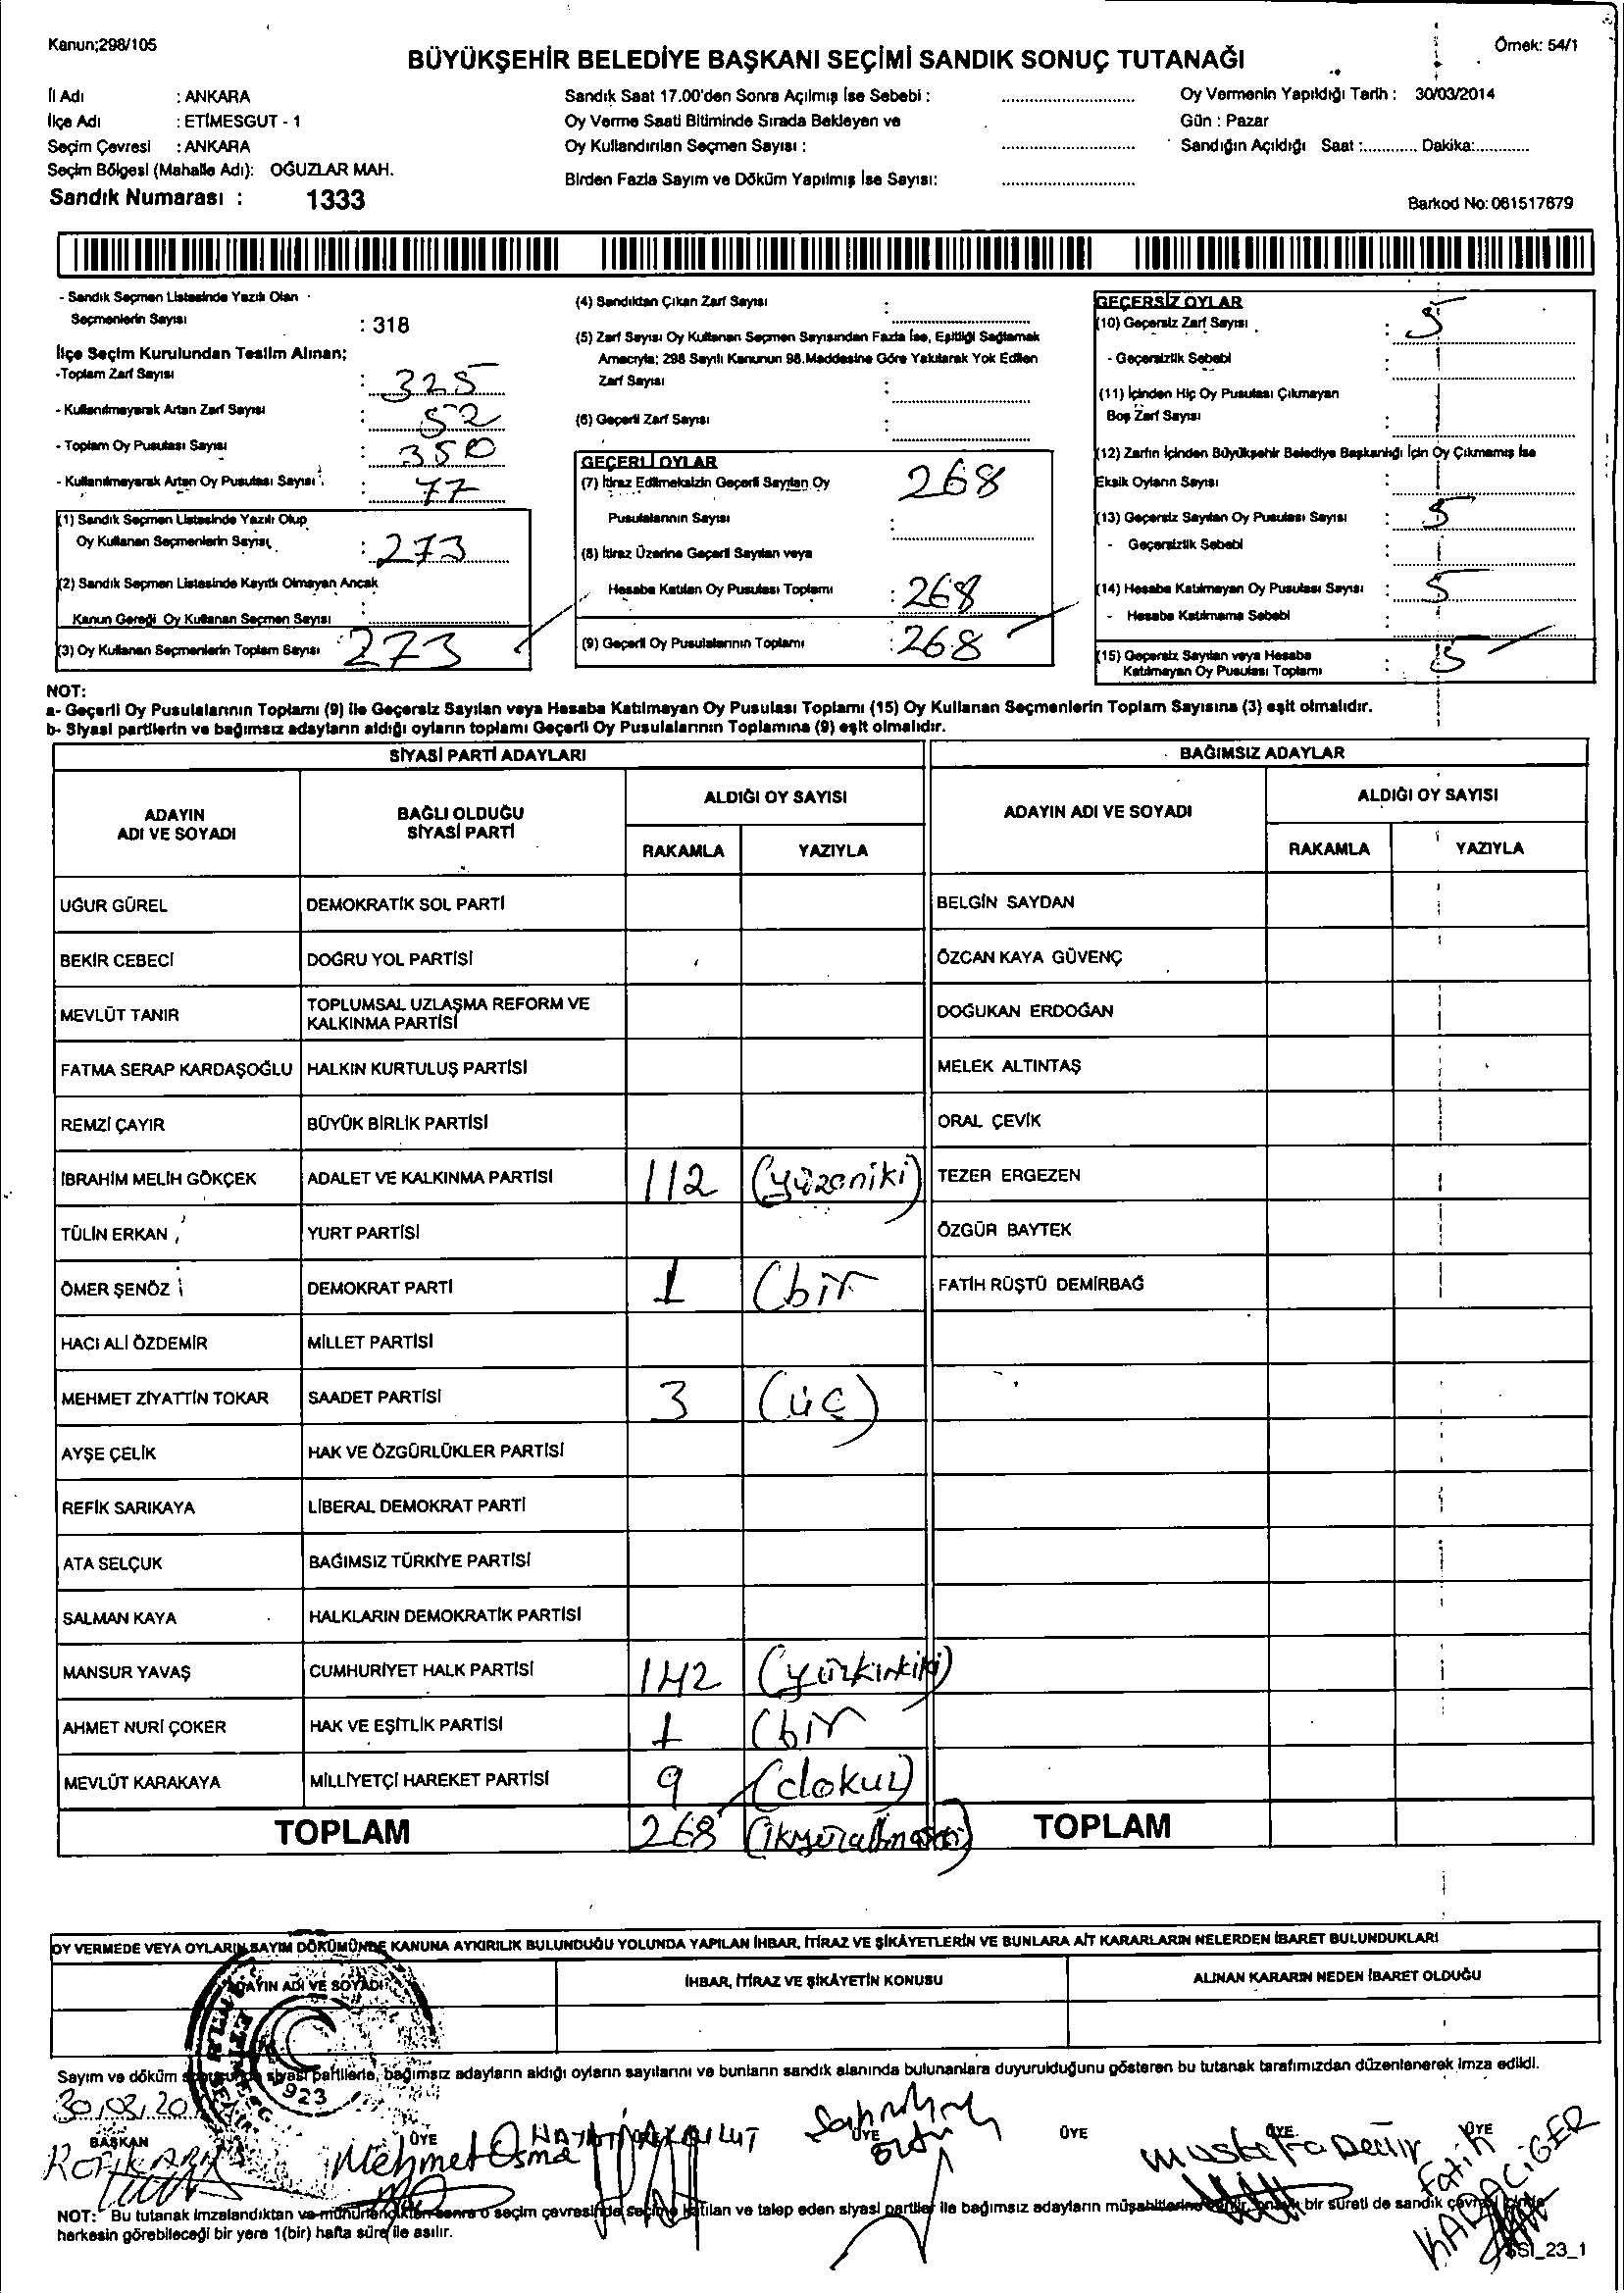 Kanun;298/105
Örnek: 54/1
BÜYÜKŞEHİR BELEDİYE BAŞKANI SEÇİMİ SANDIK SONUÇ TUTANAĞI
İl Adı : ANKARA
İlçe Adı : ETİMESGUT - 1
Seçim Çevresi : ANKARA
Seçim Bölgesi (Mahalle Adı): OĞUZLAR MAH.
Sandık Numarası : 1333
Sandık Saat 17.00'den Sonra Açılmış İse Sebebi :
Oy Verme Saati Bitiminde Sırada Bekleyen ve
Oy Kullandırılan Seçmen Sayısı :
Birden Fazla Sayım ve Döküm Yapılmış İse Sayısı:
Oy Vermenin Yapıldığı Tarih : 30/03/2014
Gün : Pazar
Sandığın Açıldığı Saat :............ Dakika:............
Barkod No: 061517679
- Sandık Seçmen Listesinde Yazılı Olan
Seçmenlerin Sayısı : 318
İlçe Seçim Kurulundan Teslim Alınan;
-Toplam Zarf Sayısı : 325
- Kullanılmayarak Artan Zarf Sayısı : 52
- Toplam Oy Pusulası Sayısı : 350
- Kullanılmayarak Artan Oy Pusulası Sayısı : 77
(1) Sandık Seçmen Listesinde Yazılı Olup
Oy Kullanan Seçmenlerin Sayısı : 273
(2) Sandık Seçmen Listesinde Kayıtlı Olmayan Ancak
Kanun Gereği Oy Kullanan Seçmen Sayısı :
(3) Oy Kullanan Seçmenlerin Toplam Sayısı : 273
(4) Sandıktan Çıkan Zarf Sayısı :
(5) Zarf Sayısı Oy Kullanan Seçmen Sayısından Fazla İse, Eşitliği Sağlamak
Amacıyla; 298 Sayılı Kanunun 98.Maddesine Göre Yakılarak Yok Edilen
Zarf Sayısı :
(6) Geçerli Zarf Sayısı :
GEÇERLİ OYLAR
(7) İtiraz Edilmeksizin Geçerli Sayılan Oy
Pusulalarının Sayısı : 268
(8) İtiraz Üzerine Geçerli Sayılan veya
Hesaba Katılan Oy Pusulası Toplamı : 268
(9) Geçerli Oy Pusulalarının Toplamı : 268
GEÇERSİZ OYLAR
(10) Geçersiz Zarf Sayısı : 5
- Geçersizlik Sebebi :
(11) İçinden Hiç Oy Pusulası Çıkmayan
Boş Zarf Sayısı :
(12) Zarfın İçinden Büyükşehir Belediye Başkanlığı İçin Oy Çıkmamış İse
Eksik Oyların Sayısı :
(13) Geçersiz Sayılan Oy Pusulası Sayısı : 5
- Geçersizlik Sebebi :
(14) Hesaba Katılmayan Oy Pusulası Sayısı : 5
- Hesaba Katılmama Sebebi :
(15) Geçersiz Sayılan veya Hesaba
Katılmayan Oy Pusulası Toplamı : 5
NOT:
a- Geçerli Oy Pusulalarının Toplamı (9) ile Geçersiz Sayılan veya Hesaba Katılmayan Oy Pusulası Toplamı (15) Oy Kullanan Seçmenlerin Toplam Sayısına (3) eşit olmalıdır.
b- Siyasi partilerin ve bağımsız adayların aldığı oyların toplamı Geçerli Oy Pusulalarının Toplamına (9) eşit olmalıdır.
SİYASİ PARTİ ADAYLARI BAĞIMSIZ ADAYLAR
ADAYIN ADI VE SOYADI BAĞLI OLDUĞU SİYASİ PARTİ ALDIĞI OY SAYISI ADAYIN ADI VE SOYADI ALDIĞI OY SAYISI
RAKAMLA YAZIYLA RAKAMLA YAZIYLA
UĞUR GÜREL DEMOKRATİK SOL PARTİ BELGİN SAYDAN
BEKİR CEBECİ DOĞRU YOL PARTİSİ ÖZCAN KAYA GÜVENÇ
MEVLÜT TANIR TOPLUMSAL UZLAŞMA REFORM VE KALKINMA PARTİSİ DOĞUKAN ERDOĞAN
FATMA SERAP KARDAŞOĞLU HALKIN KURTULUŞ PARTİSİ MELEK ALTINTAŞ
REMZİ ÇAYIR BÜYÜK BİRLİK PARTİSİ ORAL ÇEVİK
İBRAHİM MELİH GÖKÇEK ADALET VE KALKINMA PARTİSİ 112 (yüzoniki) TEZER ERGEZEN
TÜLİN ERKAN YURT PARTİSİ ÖZGÜR BAYTEK
ÖMER ŞENÖZ DEMOKRAT PARTİ 1 (bir FATİH RÜŞTÜ DEMİRBAĞ
HACI ALİ ÖZDEMİR MİLLET PARTİSİ
MEHMET ZİYATTİN TOKAR SAADET PARTİSİ 3 (üç)
AYŞE ÇELİK HAK VE ÖZGÜRLÜKLER PARTİSİ
REFİK SARIKAYA LİBERAL DEMOKRAT PARTİ
ATA SELÇUK BAĞIMSIZ TÜRKİYE PARTİSİ
SALMAN KAYA HALKLARIN DEMOKRATİK PARTİSİ
MANSUR YAVAŞ CUMHURİYET HALK PARTİSİ 142 (yüzkırkiki)
AHMET NURİ ÇOKER HAK VE EŞİTLİK PARTİSİ 1 (bir
MEVLÜT KARAKAYA MİLLİYETÇİ HAREKET PARTİSİ 9 (dokuz)
TOPLAM 268 TOPLAM
OY VERMEDE VEYA OYLARIN SAYIM DÖKÜMÜNDE KANUNA AYKIRILIK BULUNDUĞU YOLUNDA YAPILAN İHBAR, İTİRAZ VE ŞİKÂYETLERİN VE BUNLARA AİT KARARLARIN NELERDEN İBARET BULUNDUKLARI
ADAYIN ADI VE SOYADI İHBAR, İTİRAZ VE ŞİKÂYETİN KONUSU ALINAN KARARIN NEDEN İBARET OLDUĞU
1923
Sayım ve döküm siyasi partilerle, bağımsız adayların aldığı oyların sayılarını ve bunların sandık alanında bulunanlara duyurulduğunu gösteren bu tutanak tarafımızdan düzenlenerek imza edildi.
30.03.20
BAŞKAN ÜYE ÜYE ÜYE ÜYE ÜYE
Mehmet Mustafa Fatih KARACİGER
NOT: Bu tutanak imzalandıktan ve mühürlendikten sonra o seçim çevresinde seçime katılan ve talep eden siyasi partiler ile bağımsız adayların müşahitlerine bir sureti de sandık çevresi içinde
herkesin görebileceği bir yere 1(bir) hafta süre ile asılır.
SSI_23_1